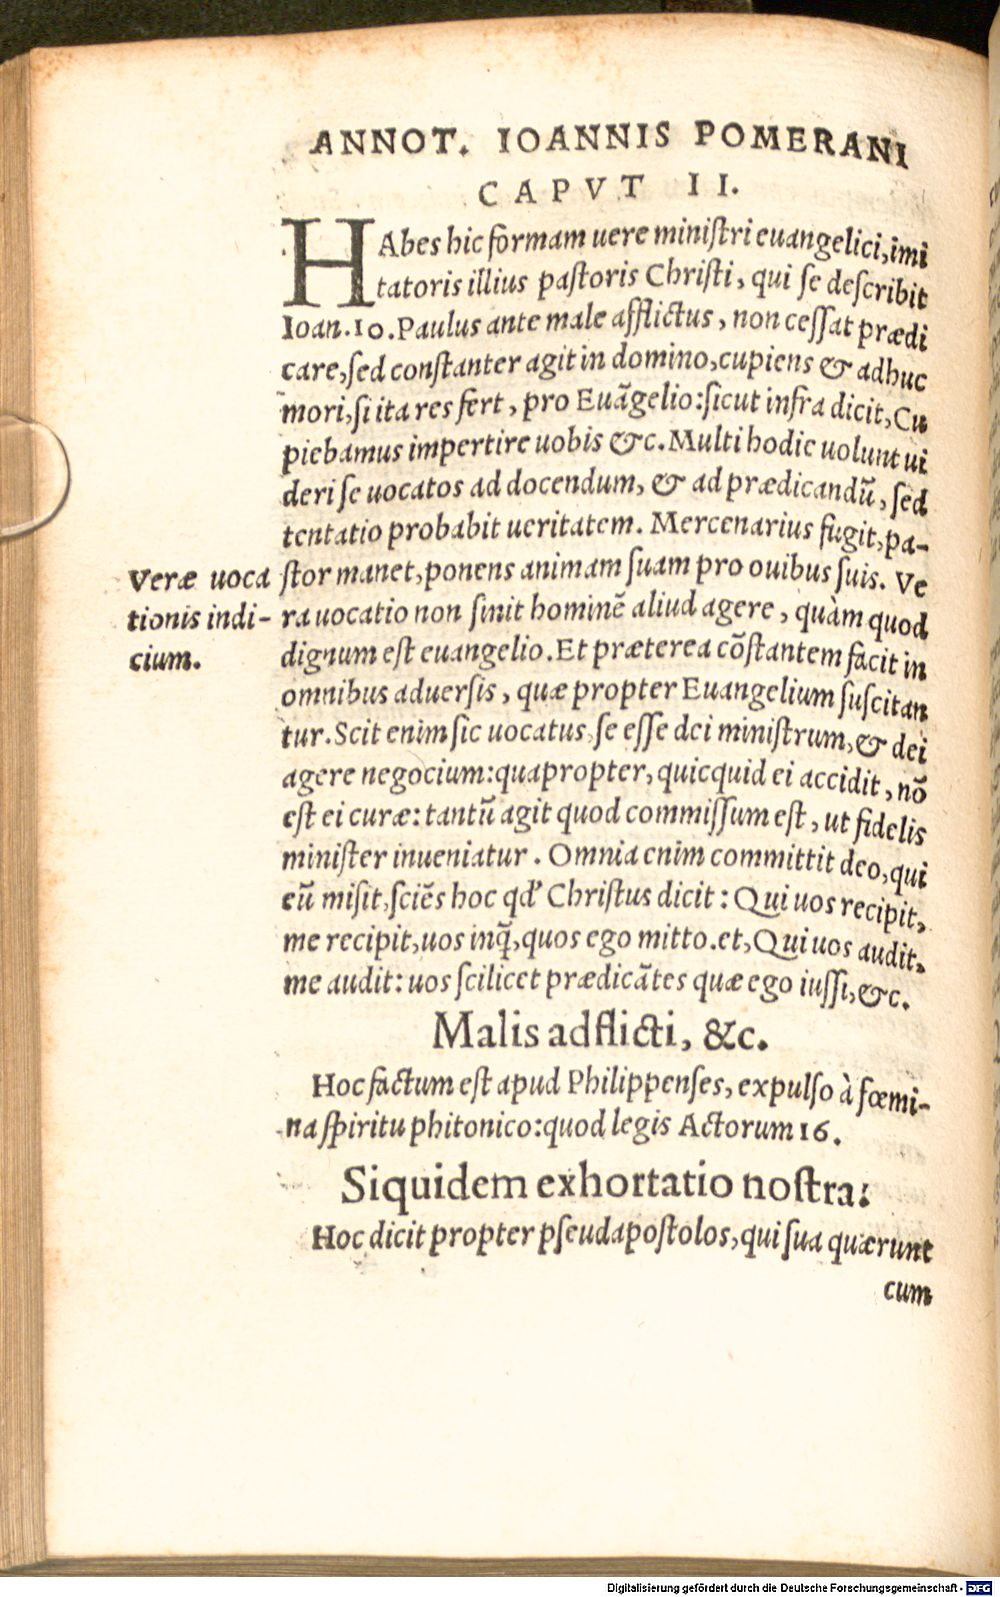 ANNOT. IOANNIS POMERANI
CAPVT II.
HAbes hic formam uere miniſtri euangelici, imi
tatoris illius paſtoris Chriſti, qui ſe deſcribit
Ioan. 10. Paulus ante male afflictus, non ceſſat prædi
care, ſed conſtanter agit in domino, cupiens & adhuc
mori, ſi ita res fert, pro Euãgelio: ſicut infra dicit, Cu
piebamus impertire uobis &c. Multi hodie uolunt ui
deri ſe uocatos ad docendum, & ad prædicandũ, ſed
tentatio probabit ueritatem. Mercenarius fugit, pa-
ſtor manet, ponens animam ſuam pro ouibus ſuis. Ve
ra uocatio non ſinit hominẽ aliud agere, quàm quod
dignum eſt euangelio. Et præterea cõſtantem facit in
omnibus aduerſis, quæ propter Euangelium ſuſcitan
tur. Scit enim ſic uocatus, ſe eſſe dei miniſtrum, & dei
agere negocium: quapropter, quicquid ei accidit, nõ
eſt ei curæ: tantũ agit quod commiſſum eſt, ut fidelis
miniſter inueniatur. Omnia enim committit deo, qui
eũ miſit, ſciẽs hoc qd' Chriſtus dicit: Qui uos recipit,
me recipit, uos inq̃, quos ego mitto. et, Qui uos audit,
me audit: uos ſcilicet prædicãtes quæ ego iuſſi, &c.
Veræ uoca
tionis indi-
cium.
Malis adflicti, &c.
Hoc factum eſt apud Philippenſes, expulſo à fœmi-
na ſpiritu phitonico: quod legis Actorum 16.
Siquidem exhortatio noſtra:
Hoc dicit propter pſeudapoſtolos, qui ſua quærunt
cum
Digitalisierung gefördert durch die Deutsche Forschungsgemeinschaft - DFG